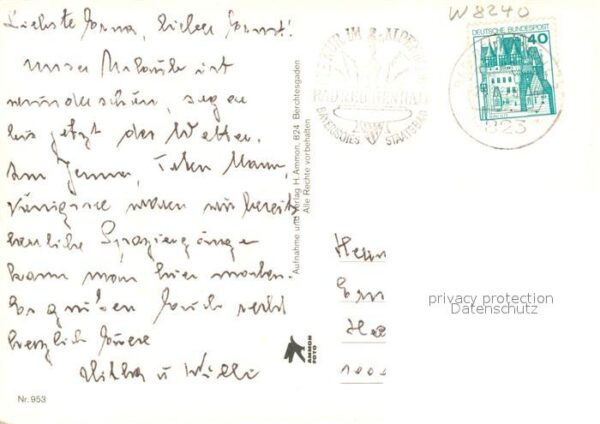 W 8240
Liebste Erna, lieber Ernst!
Unser Urlaub ist
wunderschön, sogar
bis jetzt das Wetter.
Am Jenner, Toten Mann,
waren wir bereits
herrliche Spaziergänge
kann man hier machen.
Es grüßen Euch recht
herzlich Eure
u Willi
Nr. 953
Aufnahme und Verlag H. Ammon, 824 Berchtesgaden
Alle Rechte vorbehalten
AMMON
FOTO
BAD REICHENHALL
BAYERISCHES STAATSBAD
DEUTSCHE BUNDESPOST
40
823
Herrn
Ern
100
privacy protection
Datenschutz